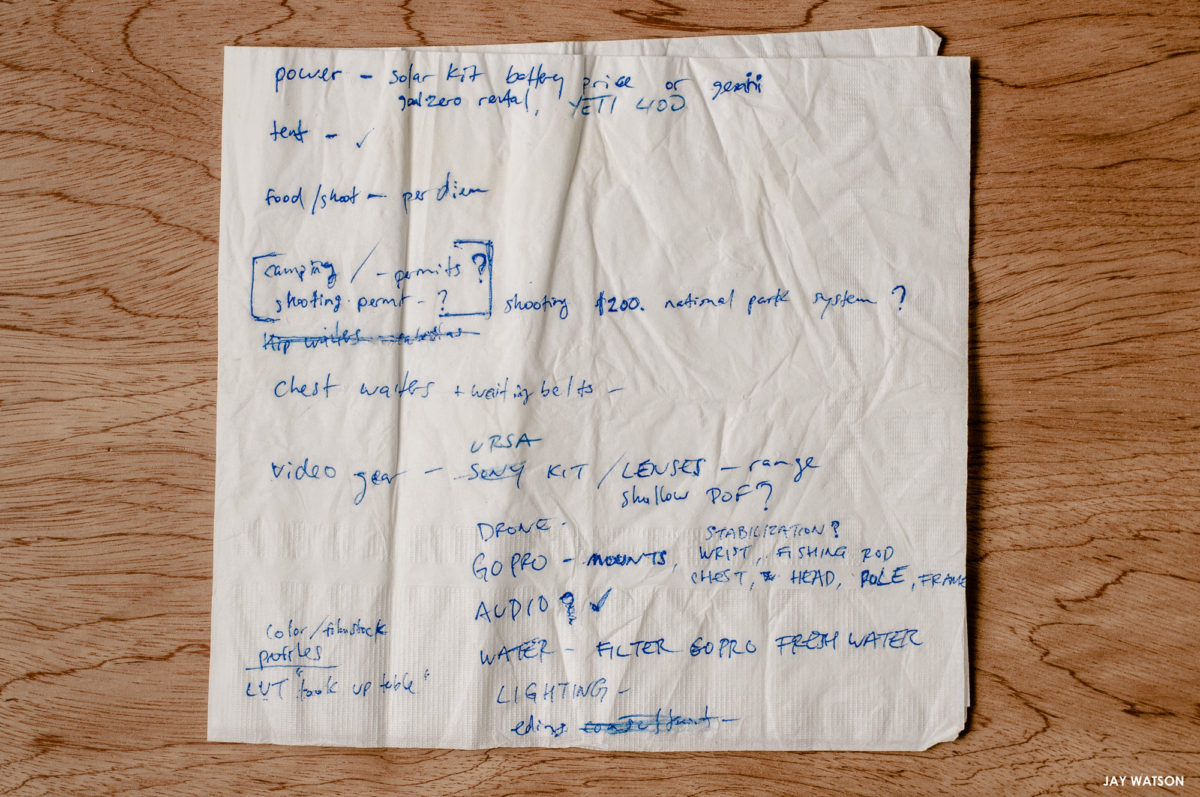 power – solar kit battery price or gemini
goalzero rental, YETI 400
tent – ✓
food/shoot – per diem
camping / – permits ?
shooting permit – ? shooting $200. national park system ?
chest waiters + waiting belts –
URSA
video gear – SONY KIT / LENSES – range
shallow DOF?
DRONE –
STABILIZATION?
GOPRO – MOUNTS, WRIST, FISHING ROD
CHEST, HEAD, POLE, FRAME
AUDIO ? ✓
color/filmstock
profiles
WATER – FILTER GOPRO FRESH WATER
LUT "look up table"
LIGHTING –
JAY WATSON